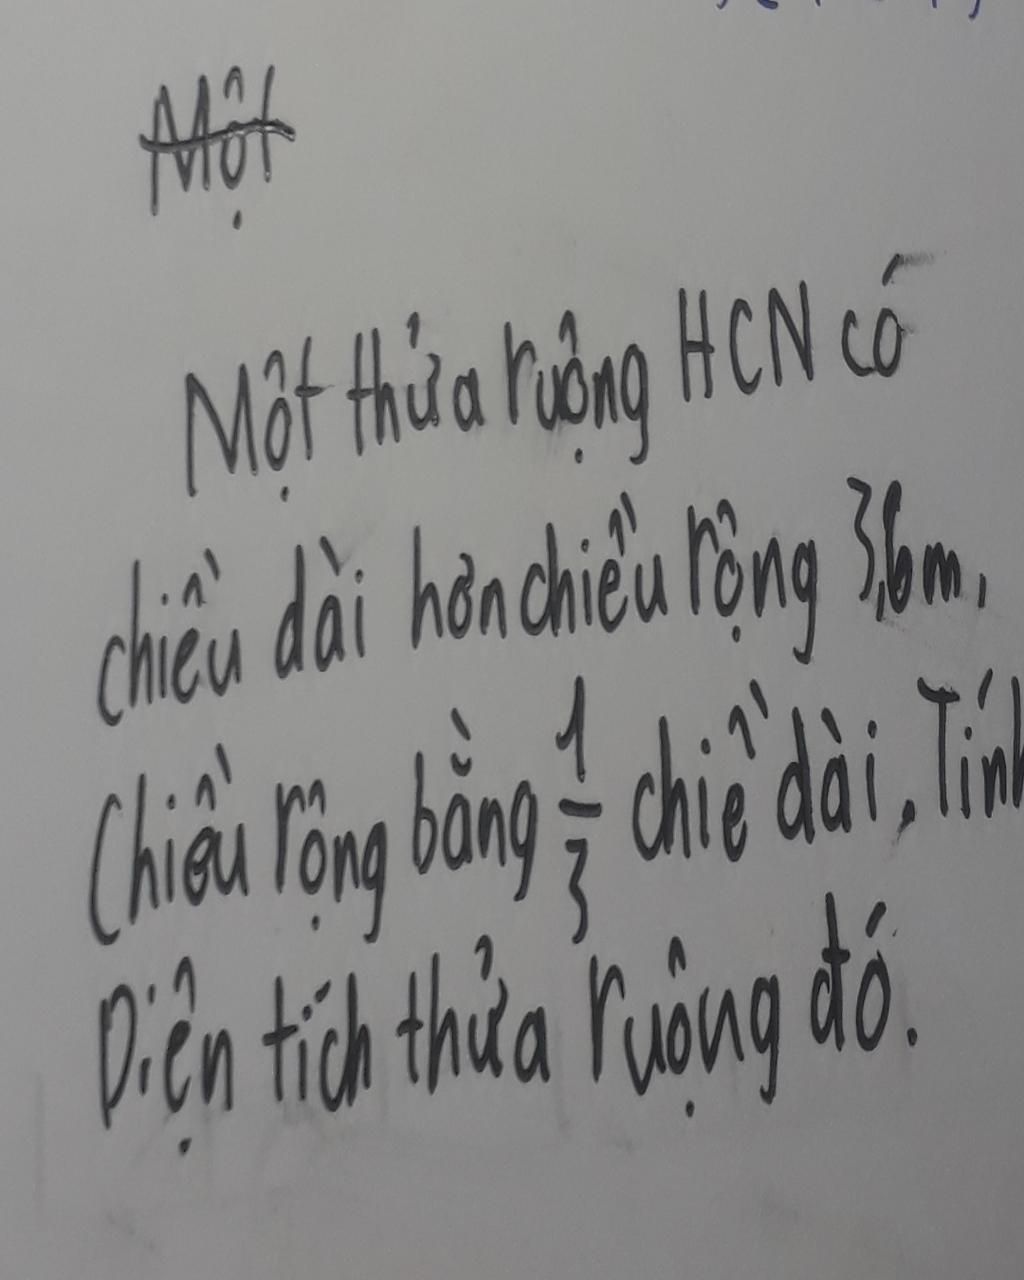 Một
Một thửa ruộng HCN có
chiều dài hơn chiều rộng 3,6m,
Chiều rộng bằng 1/3 chiề dài, Tính
Diện tích thửa ruộng đó.